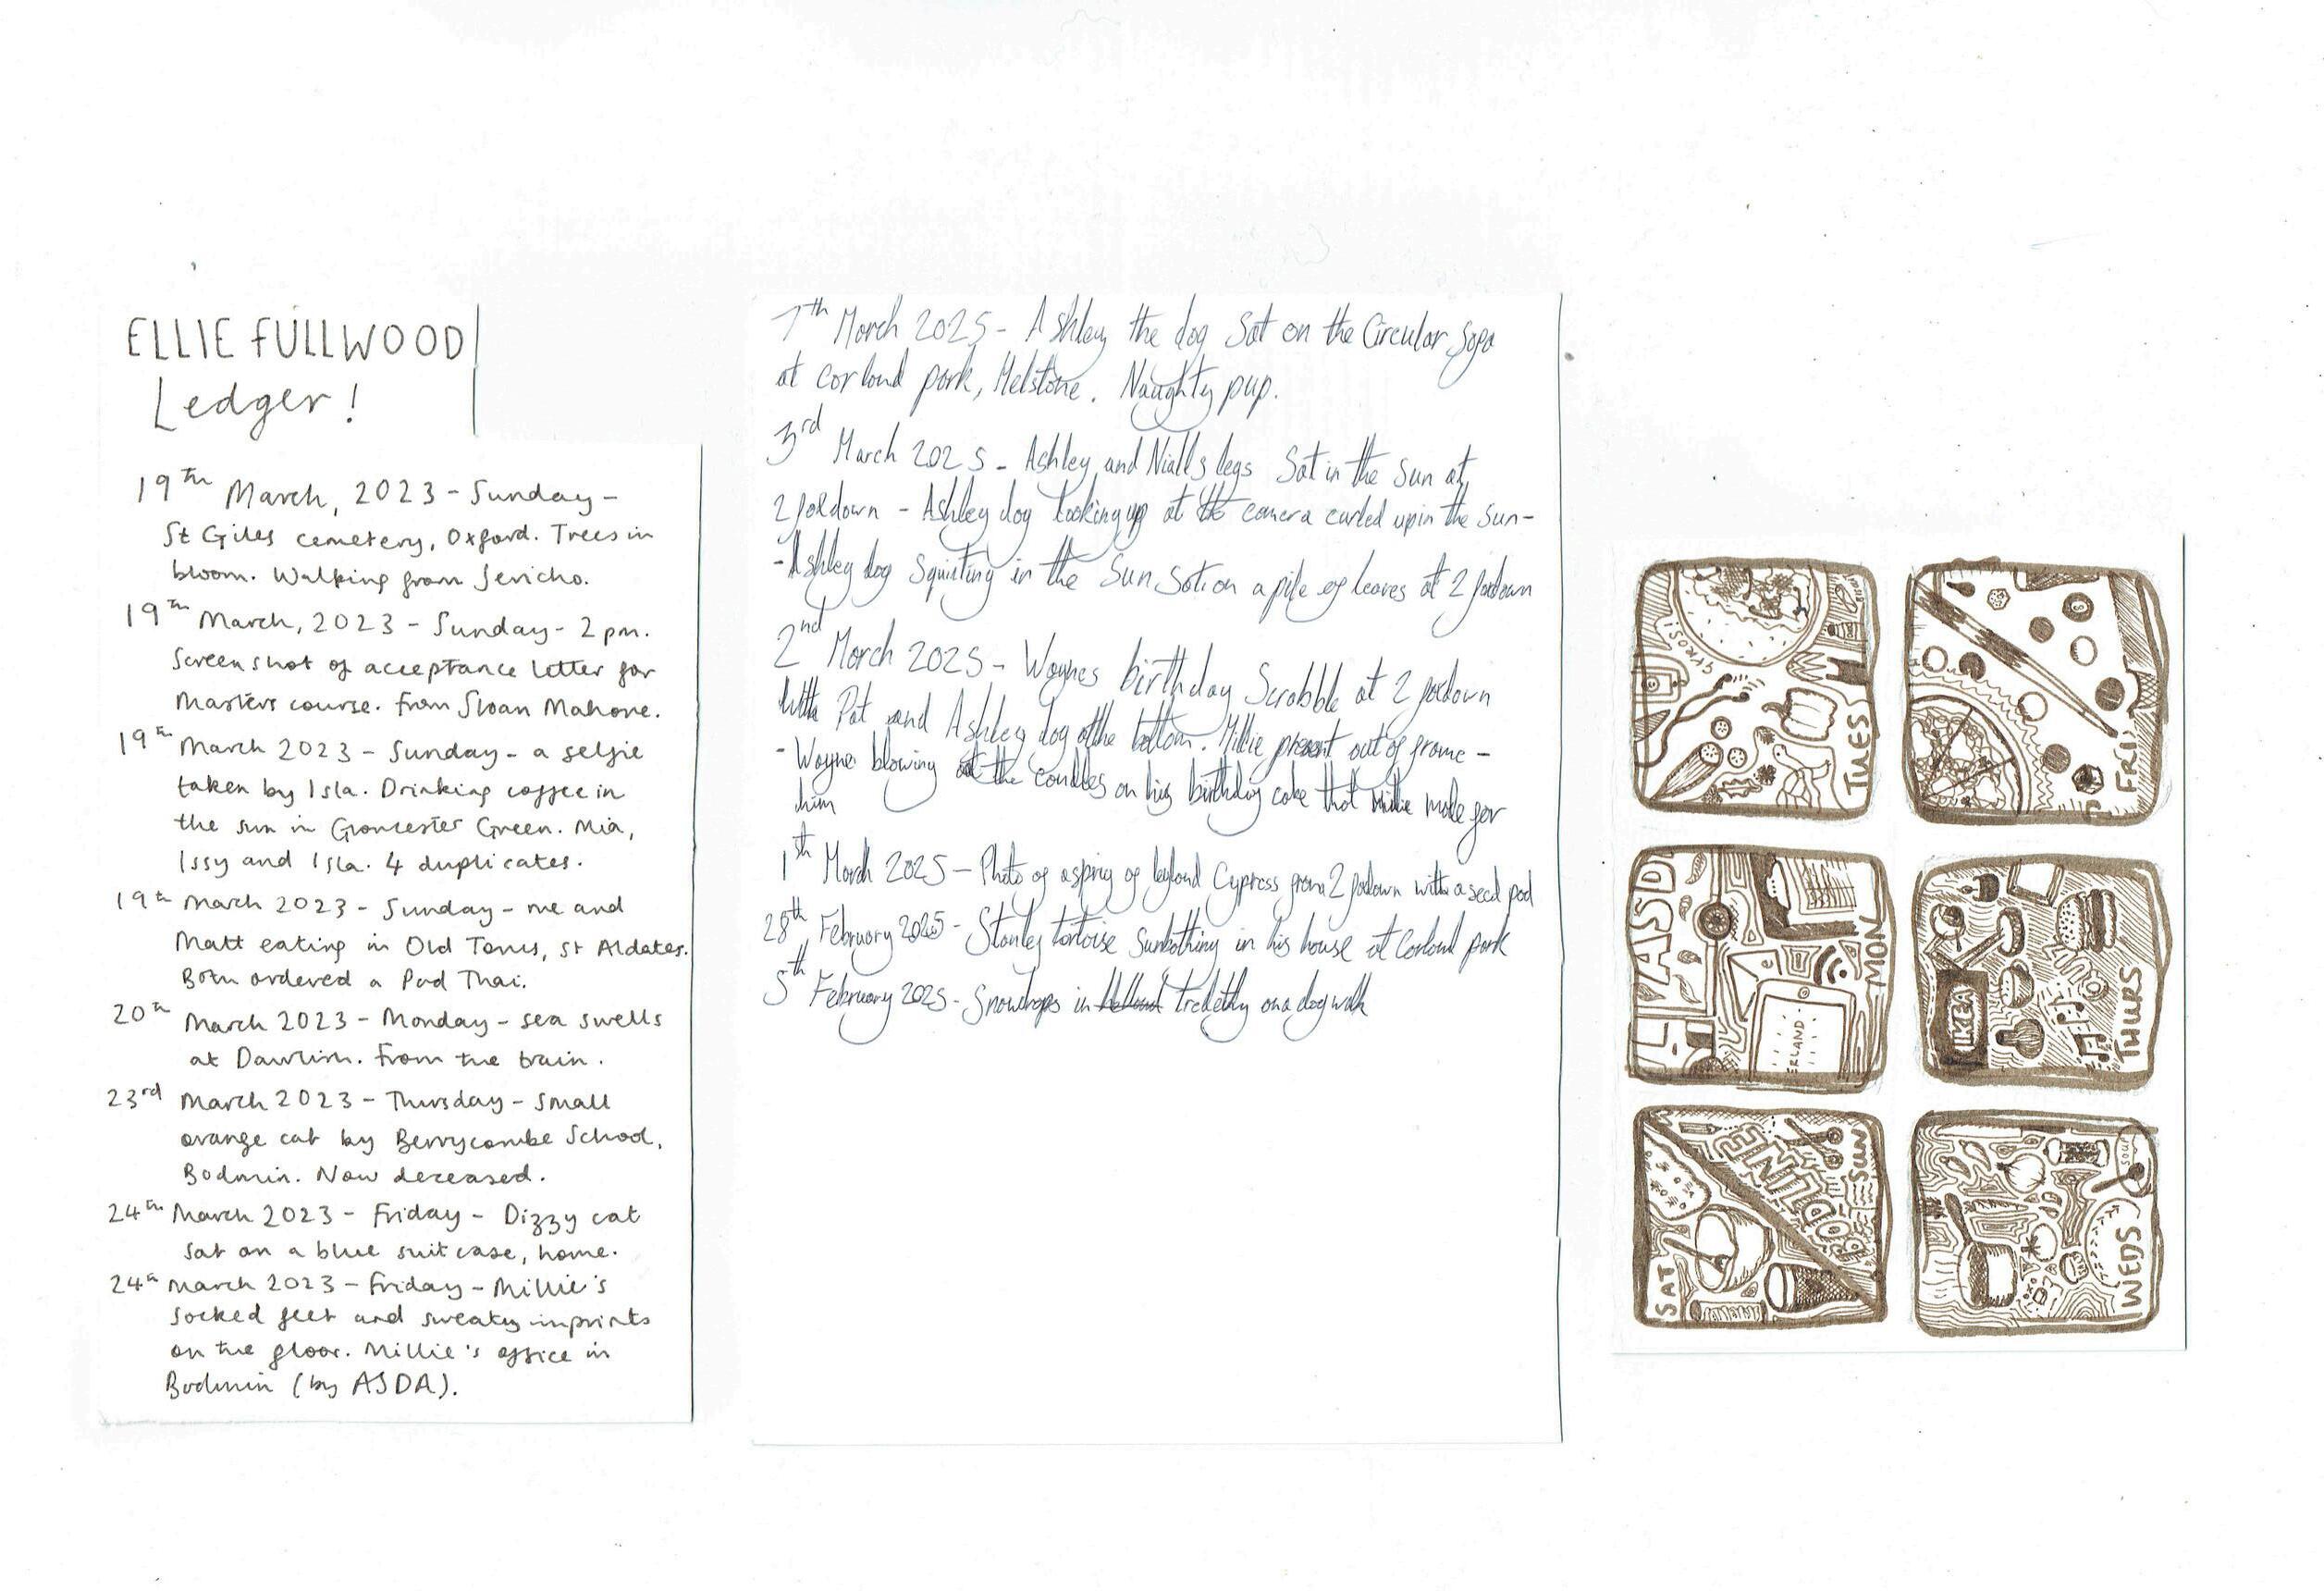 ELLIE FULLWOOD
Ledger!
19th March, 2023 - Sunday -
St Giles cemetery, Oxford. Trees in
bloom. Walking from Jericho.
19th March, 2023 - Sunday - 2pm.
Screenshot of acceptance letter for
Masters course. From Sloan Mahone.
19th March 2023 - Sunday - a selfie
taken by Isla. Drinking coffee in
the sun in Gloucester Green. Mia,
Issy and Isla. 4 duplicates.
19th March 2023 - Sunday - me and
Matt eating in Old Toms, St Aldates.
Both ordered a Pad Thai.
20th March 2023 - Monday - sea swells
at Dawlish. From the train.
23rd March 2023 - Thursday - small
orange cat by Berrycombe School,
Bodmin. Now deceased.
24th March 2023 - Friday - Dizzy cat
sat on a blue suitcase, home.
24th March 2023 - Friday - Millie's
socked feet and sweaty imprints
on the floor. Millie's office in
Bodmin (by ASDA).
7th March 2025 - Ashley the dog Sat on the Circular Sofa
at corland park, Helstone. Naughty pup.
3rd March 2025 - Ashley and Nialls legs Sat in the Sun at
2 foxdown - Ashley dog looking up at the camera curled up in the sun -
- Ashley dog Squinting in the Sun Sat on a pile of leaves at 2 foxdown
2nd March 2025 - Waynes birthday Scrabble at 2 foxdown
Pat and Ashley dog at the bottom. Millie present out of frame -
- Wayne blowing out the candles on his birthday cake that Millie made for
him
1th March 2025 - Photo of a sprig of leyland Cypress from 2 foxdown with a seed pod
28th February 2025 - Stanley tortoise Sunbathing in his house at Corland park
5th February 2025 - Snowdrops in Tredethy on a dog walk
GYROS!
TUES
FRI
ASDA
MON
ERLAND
IKEA
THURS
SAT
BODLINE
SUN
SOUR
WEDS